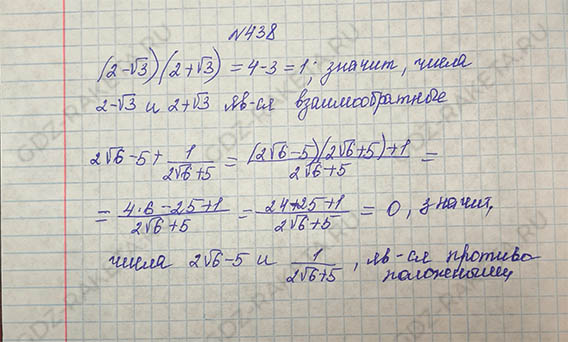 №438
(2-√3)(2+√3) = 4-3 = 1; значит, числа
2-√3 и 2+√3 яв-ся взаимообратные
2√6-5+ 1/(2√6+5) = ((2√6-5)(2√6+5)+1)/(2√6+5) =
= (4·6-25+1)/(2√6+5) = (24+25+1)/(2√6+5) = 0, значит,
числа 2√6-5 и 1/(2√6+5), яв-ся противо
GDZ-RAKETA.RU